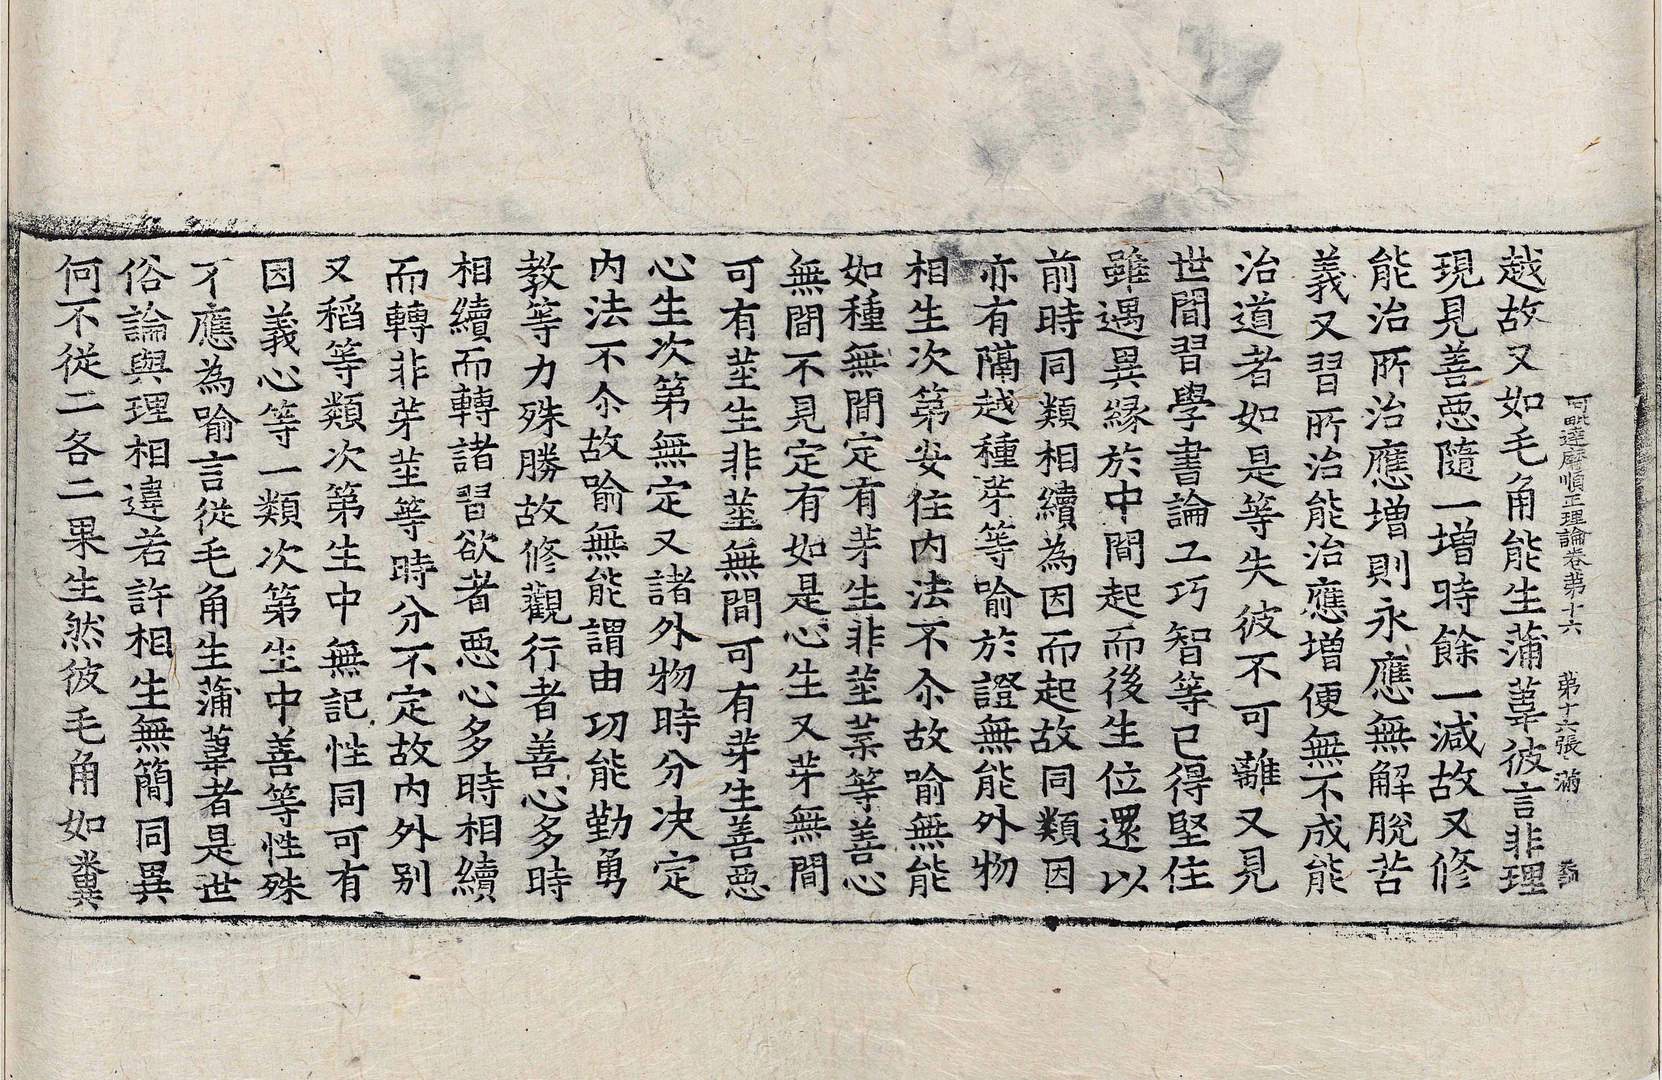 阿毗達磨順正理論卷第十六　第十六張　滿
越故又如毛角能生蒲葦彼言非理
現見善惡隨一增時餘一減故又修
能治所治應增則永應無解脫苦
義又習所治能治應增便無不成能
治道者如是等失彼不可離又見
世間習學書論工巧智等已得堅住
雖遇異緣於中間起而後生位還以
前時同類相續為因而起故同類因
亦有隔越種芽等喻於證無能外物
相生次第安住內法不尒故喻無能
如種無間定有芽生非莖葉等善心
無間不見定有如是心生又芽無間
可有莖生非莖無間可有芽生善惡
心生次第無定又諸外物時分決定
內法不尒故喻無能謂由功能勤勇
教等力殊勝故修觀行者善心多時
相續而轉諸習欲者惡心多時相續
而轉非芽莖等時分不定故內外別
又稻等類次第生中無記性同可有
因義心等一類次第生中善等性殊
不應為喻言從毛角生蒲葦者是世
俗論與理相違若許相生無簡同異
何不從二各二果生然彼毛角如糞